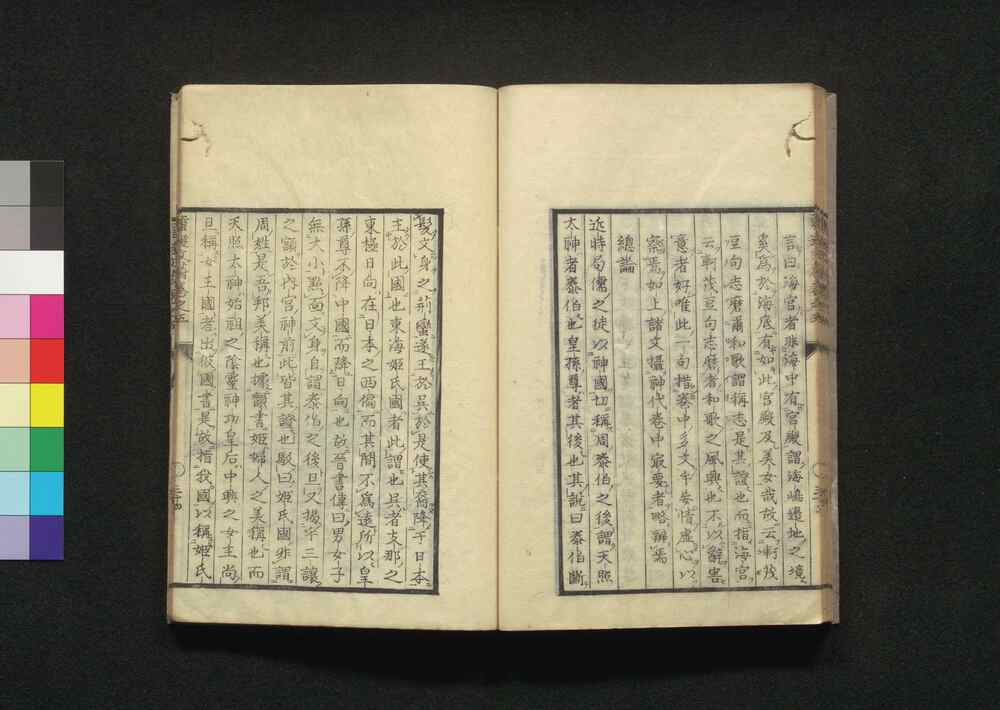 言曰海宮者非海中有宮殿謂海嶋邊地之境
奚爲於海底有如此宮殿及美女哉故云軻茂
豆句志磨爾和歌謂稱志是其證也而指海宮
云軻茂豆句志磨者和歌之風興也不以辭害
意者好唯此一句措卷中多文年安情虚心以
察焉如上諸文攝神代卷中最要者略辨焉
總論
近時曲儒之徒以神國切稱周泰伯之後謂天照
太神者泰伯也皇孫尊者其後也其説曰泰伯斷
髮文身之荊蠻遂王於吳於是使其裔降于日本
王於此國也東海姬氏國者此謂也吳者支那之
東極日向在日本之西偏而其間不爲遠所以皇
孫尊不降中國而降日向也故晉書傳曰男女子
無大小黥面文身自謂泰伯之後且又揚牟三讓
之額於内宮神前此皆其證也駁曰姬氏國非謂
周姓是吾邦美稱也據韻書姬婦人之美稱也而
天照太神始祖之陰靈神功皇后中興之女主尚
且稱女王國者出彼國書是故指我國以稱姬氏